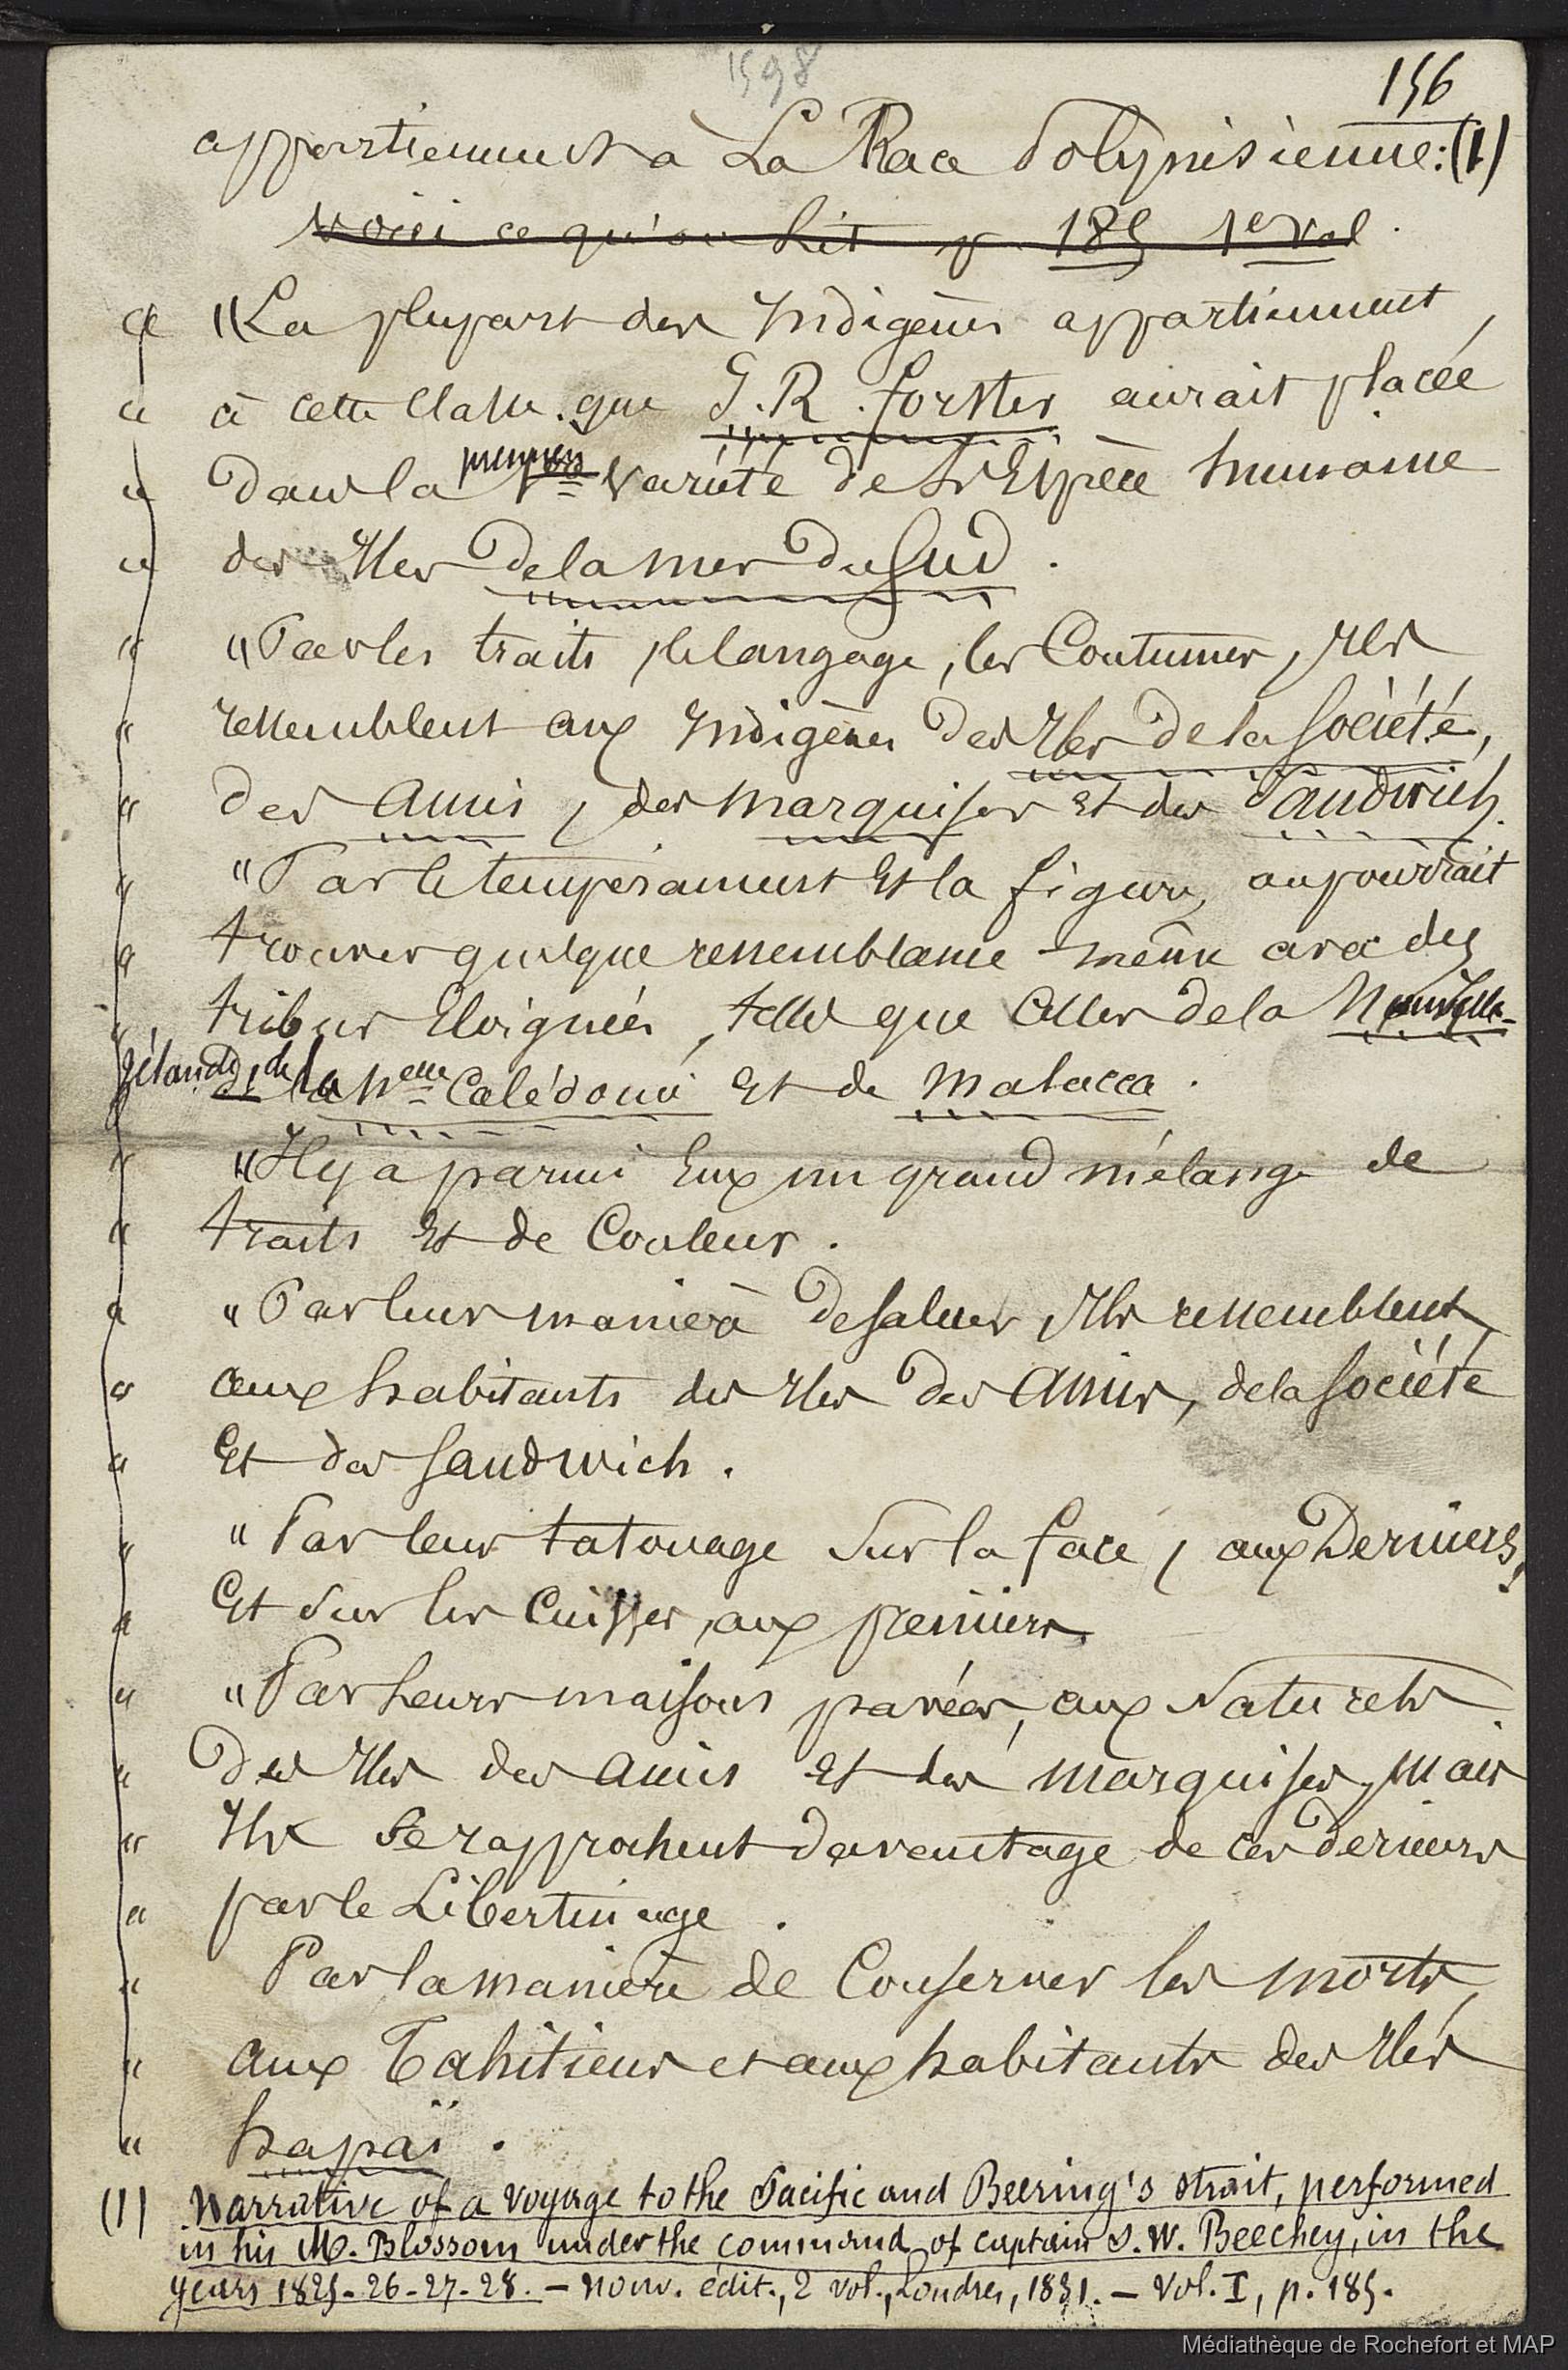 1598
156
appartiennent à La Race Polynésienne: (1)
voici ce qu'on lit p. 185 1er vol.
" "La plupart des Indigènes appartiennent
" à cette classe que G. R. Forster aurait placée
" dans la première variété de l'Espèce humaine
" des Iles de la mer du Sud.
" "Par les traits, le langage, les Coutumes, Ils
" ressemblent aux Indigènes des Iles de la Société,
" des Amis, des marquises et des Sandwich.
" "Par le tempérament et la figure, on pourrait
" trouver quelque ressemblance même avec des
" tribus Eloignées, telles que celles de la Nouvelle-
Zélande, de la Nelle Calédonie et de Malacca.
" "Il y a parmi Eux un grand mélange de
" traits et de Couleur.
" "Par leur manière de saluer, Ils ressemblent
" aux habitants des Iles des Amis, de la Société
" Et des Sandwich.
" "Par leur tatouage sur la face, aux Derniers,
" Et sur les Cuisses, aux premiers.
" "Par Leurs maisons pavées, aux Naturels
" des Iles des Amis et des marquises, mais
" Ils se rapprochent davantage de ces derniers
" par le Libertinage.
" Par la manière de Conserver les morts,
" aux Tahitiens et aux habitants des Iles
" hapaï.
(1) Narrative of a voyage to the Pacific and Beering's strait, performed
in his M. Blossom under the command of captain J. W. Beechey, in the
years 1825-26-27-28. — nouv. édit., 2 vol., Londres, 1831. — Vol. I, p. 185.
Médiathèque de Rochefort et MAP